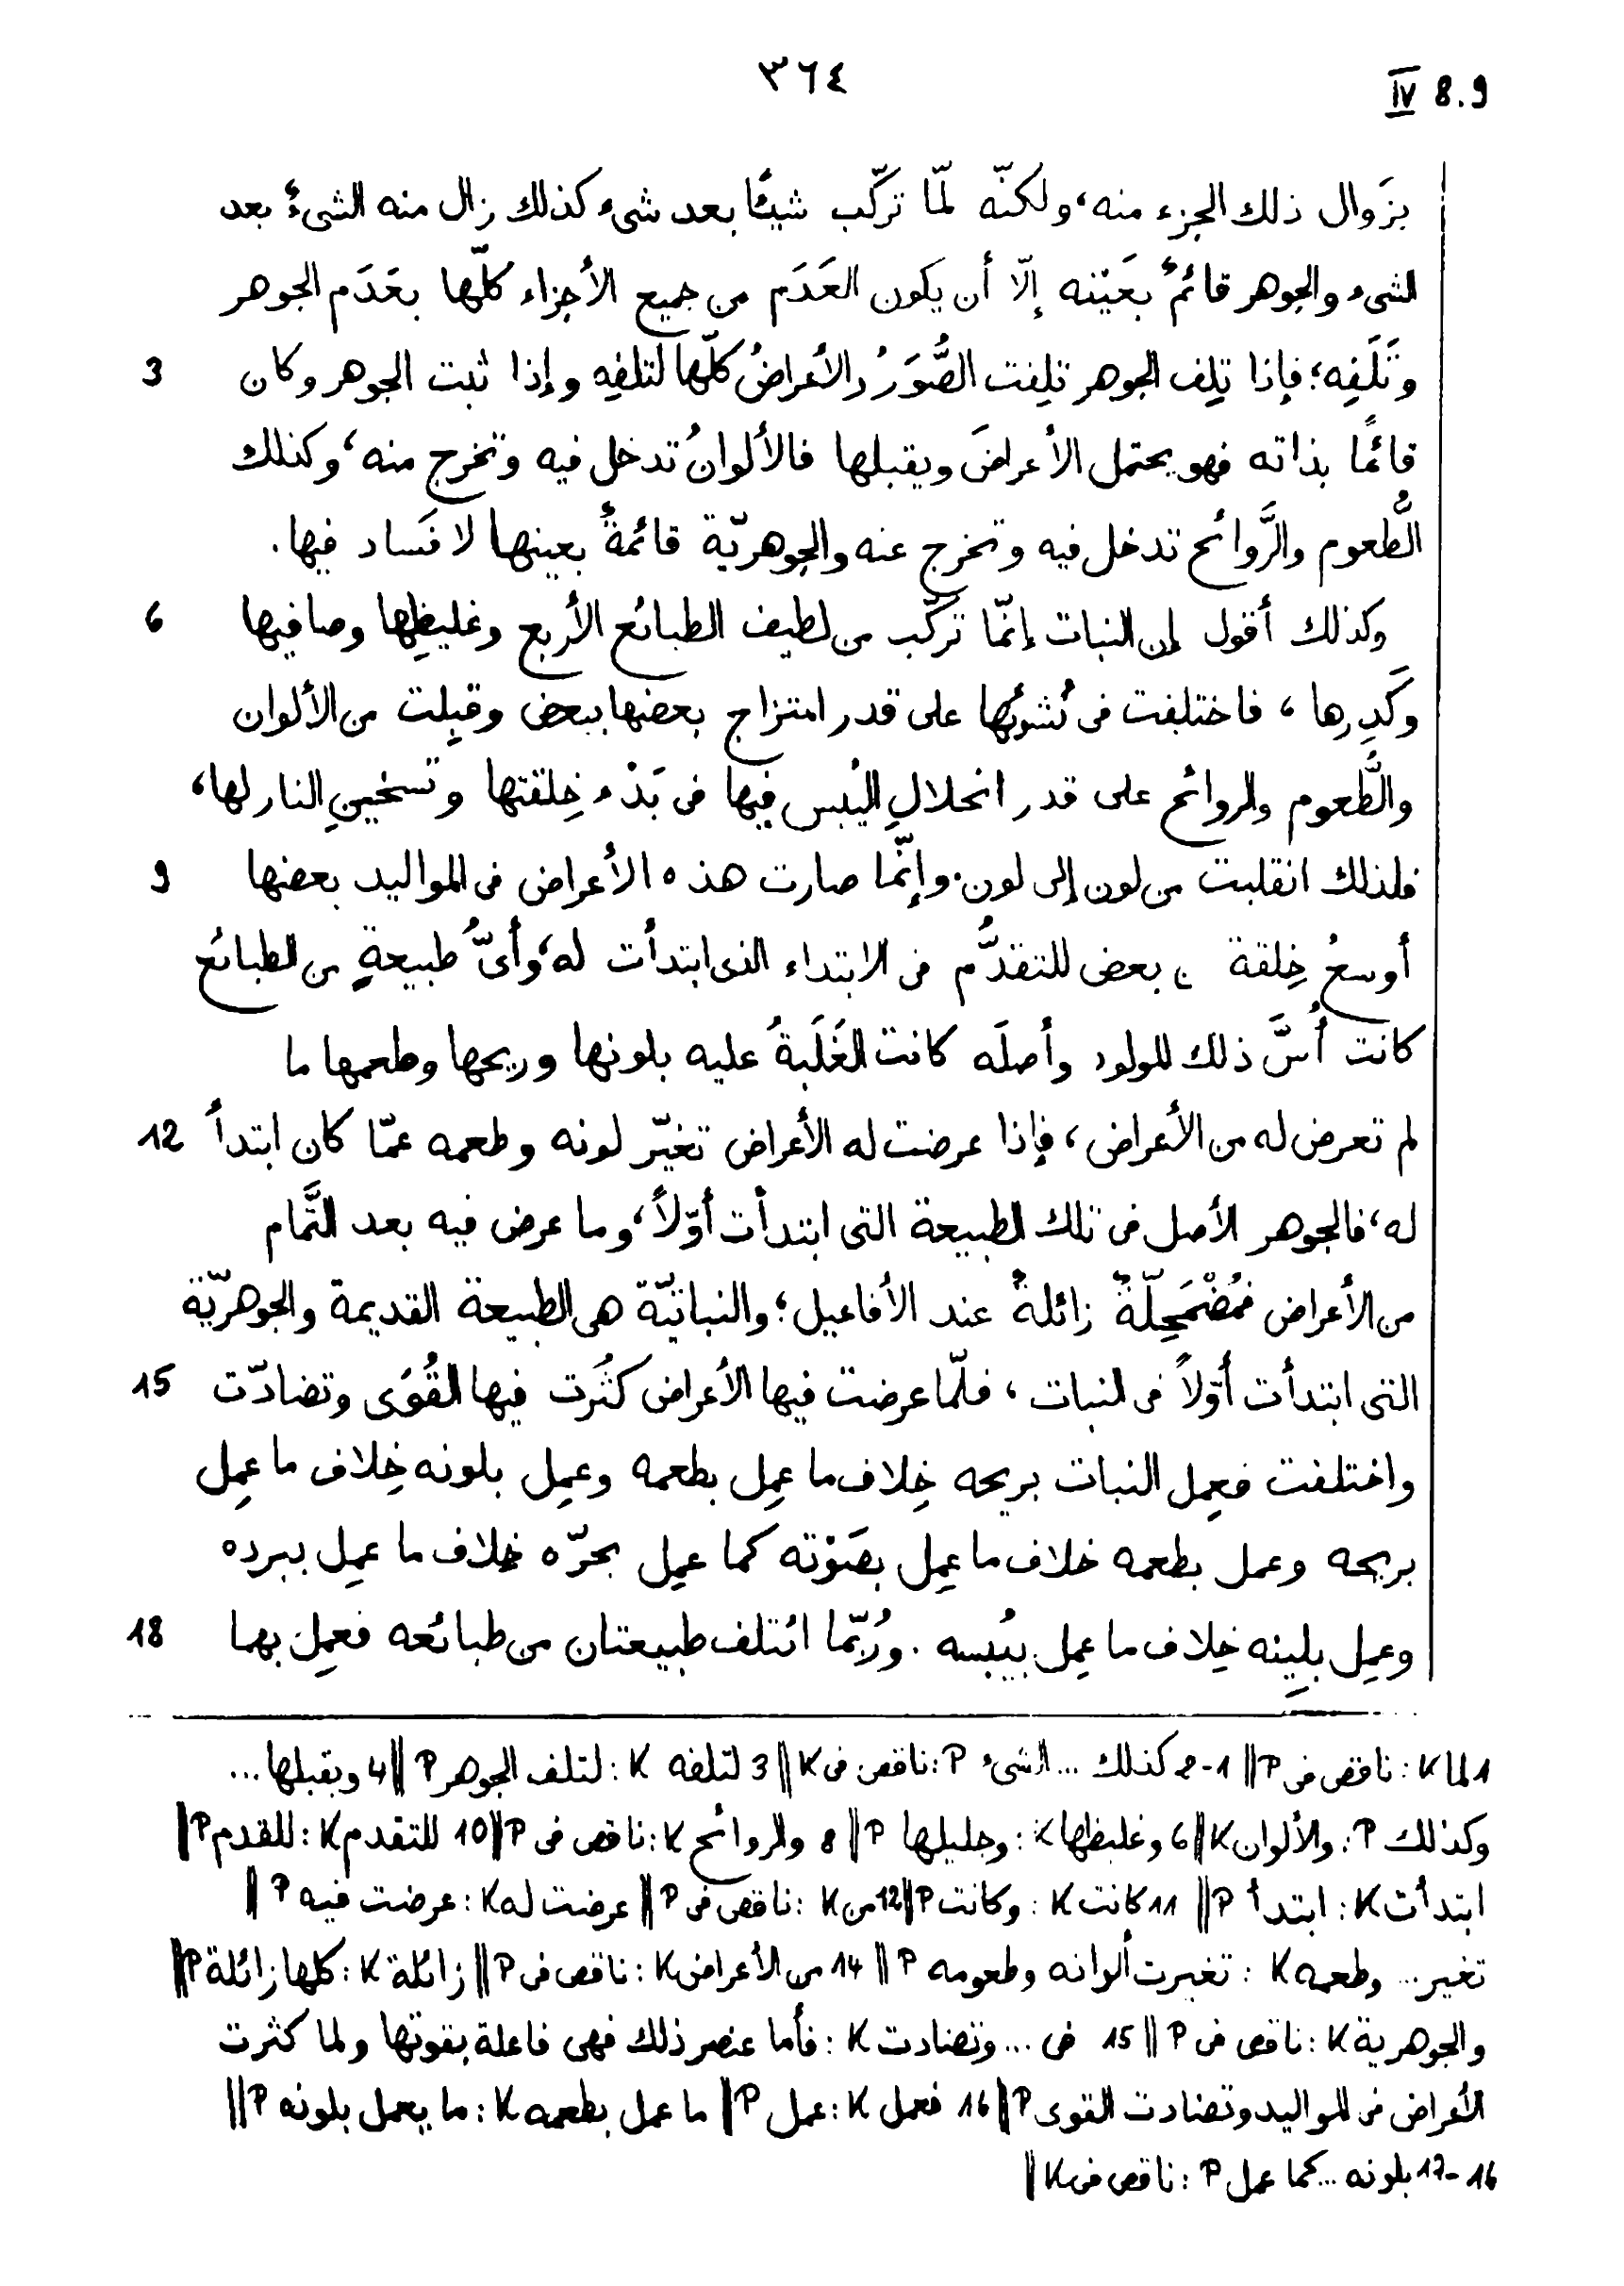 ٣٦٤
IV 8.9
بزَوال ذلك الجزء منه، ولكنّه لمّا تركّب شيئًا بعد شىء كذلك زال منه الشىءُ بعد
الشىء والجوهر قائمٌ بعَيْنه إلّا أن يكون العَدَم من جميع الأجزاء كلّها بعَدَم الجوهر
وتَلَفِه؛ فإذا تلِف الجوهر تلِفت الصُّوَرُ والأعراضُ كلّها لتلفِه وإذا ثبت الجوهر وكان 3
قائمًا بذاته فهو يحتمل الأعراضَ ويقبلها فالألوانُ تدخل فيه وتخرج منه، وكذلك
الطُّعوم والرَّوائح تدخل فيه وتخرج عنه والجوهريّة قائمةٌ بعينها لا فَساد فيها.
وكذلك أقول إن النبات إنّما تركّب من لطيف الطبائع الأربع وغليظِها وصافيها 6
وكَدِرها، فاختلفت فى نُشوئها على قدر امتزاج بعضها ببعض وقبِلت من الألوان
والطَّعوم والروائح على قدر انحلالِ اليُبس فيها فى بَدْء خِلقتها وتسخينِ النار لها،
فلذلك انقلبت من لون إلى لون. وإنّما صارت هذه الأعراض فى المواليد بعضها 9
أوسعُ خِلقة من بعض للتقدُّم فى الابتداء الذى ابتدأت له، وأىُّ طبيعةٍ من الطبائع
كانت أُسَّ ذلك المولود وأصلَه كانت الغَلَبةُ عليه بلونها وريحها وطعمها ما
لم تعرض له من الأعراض، فإذا عرضت له الأعراض تغيّر لونه وطعمه عمّا كان ابتدأ 12
له، فالجوهر الأصل فى تلك الطبيعة التى ابتدأت أوّلاً، وما عرض فيه بعد التَّمام
من الأعراض فمُضْمَحِلّةٌ زائلةٌ عند الأفاعيل؛ والنباتيّة هى الطبيعة القديمة والجوهريّة
التى ابتدأت أوّلاً فى النبات، فلمّا عرضت فيها الأعراض كثُرت فيها القُوَى وتضادّت 15
واختلفت فعمِل النبات بريحه خِلاف ما عمِل بطعمه وعمِل بلونه خِلاف ما عمِل
بريحه وعمل بطعمه خلاف ما عمِل بصَوْته كما عمِل بحرّه خِلاف ما عمِل ببرده
وعمِل بلِينه خِلاف ما عمِل بيُبسه. ورُبّما ائتلف طبيعتان من طبائعه فعمِل بهما 18
1 لما K: ناقص فى P || 1-2 كذلك ... الشىء P: ناقص فى K || 3 لتلفه K: لتلف الجوهر P || 4 ويقبلها ...
وكذلك P: والألوان K || 6 وغليظها K: وجليلها P || 8 والروائح K: ناقص فى P || 10 للتقدم K: للقدم P ||
ابتدأت K: ابتدأ P || 11 كانت K: وكانت P || 12 من K: ناقص فى P || عرضت له K: عرضت فيه P ||
تغير ... وطعمه K: تغيرت ألوانه وطعومه P || 14 من الأعراض K: ناقص فى P || زائلة K: كلها زائلة P ||
والجوهرية K: ناقص فى P || 15 فى ... وتضادت K: فأما عنصر ذلك فهى فاعلة بقوتها ولما كثرت
الأعراض فى المواليد وتضادت القوى P || 16 فعمل K: عمل P || ما عمل بطعمه K: ما يعمل بلونه P ||
16-17 بلونه ... كما عمل P: ناقص فى K ||